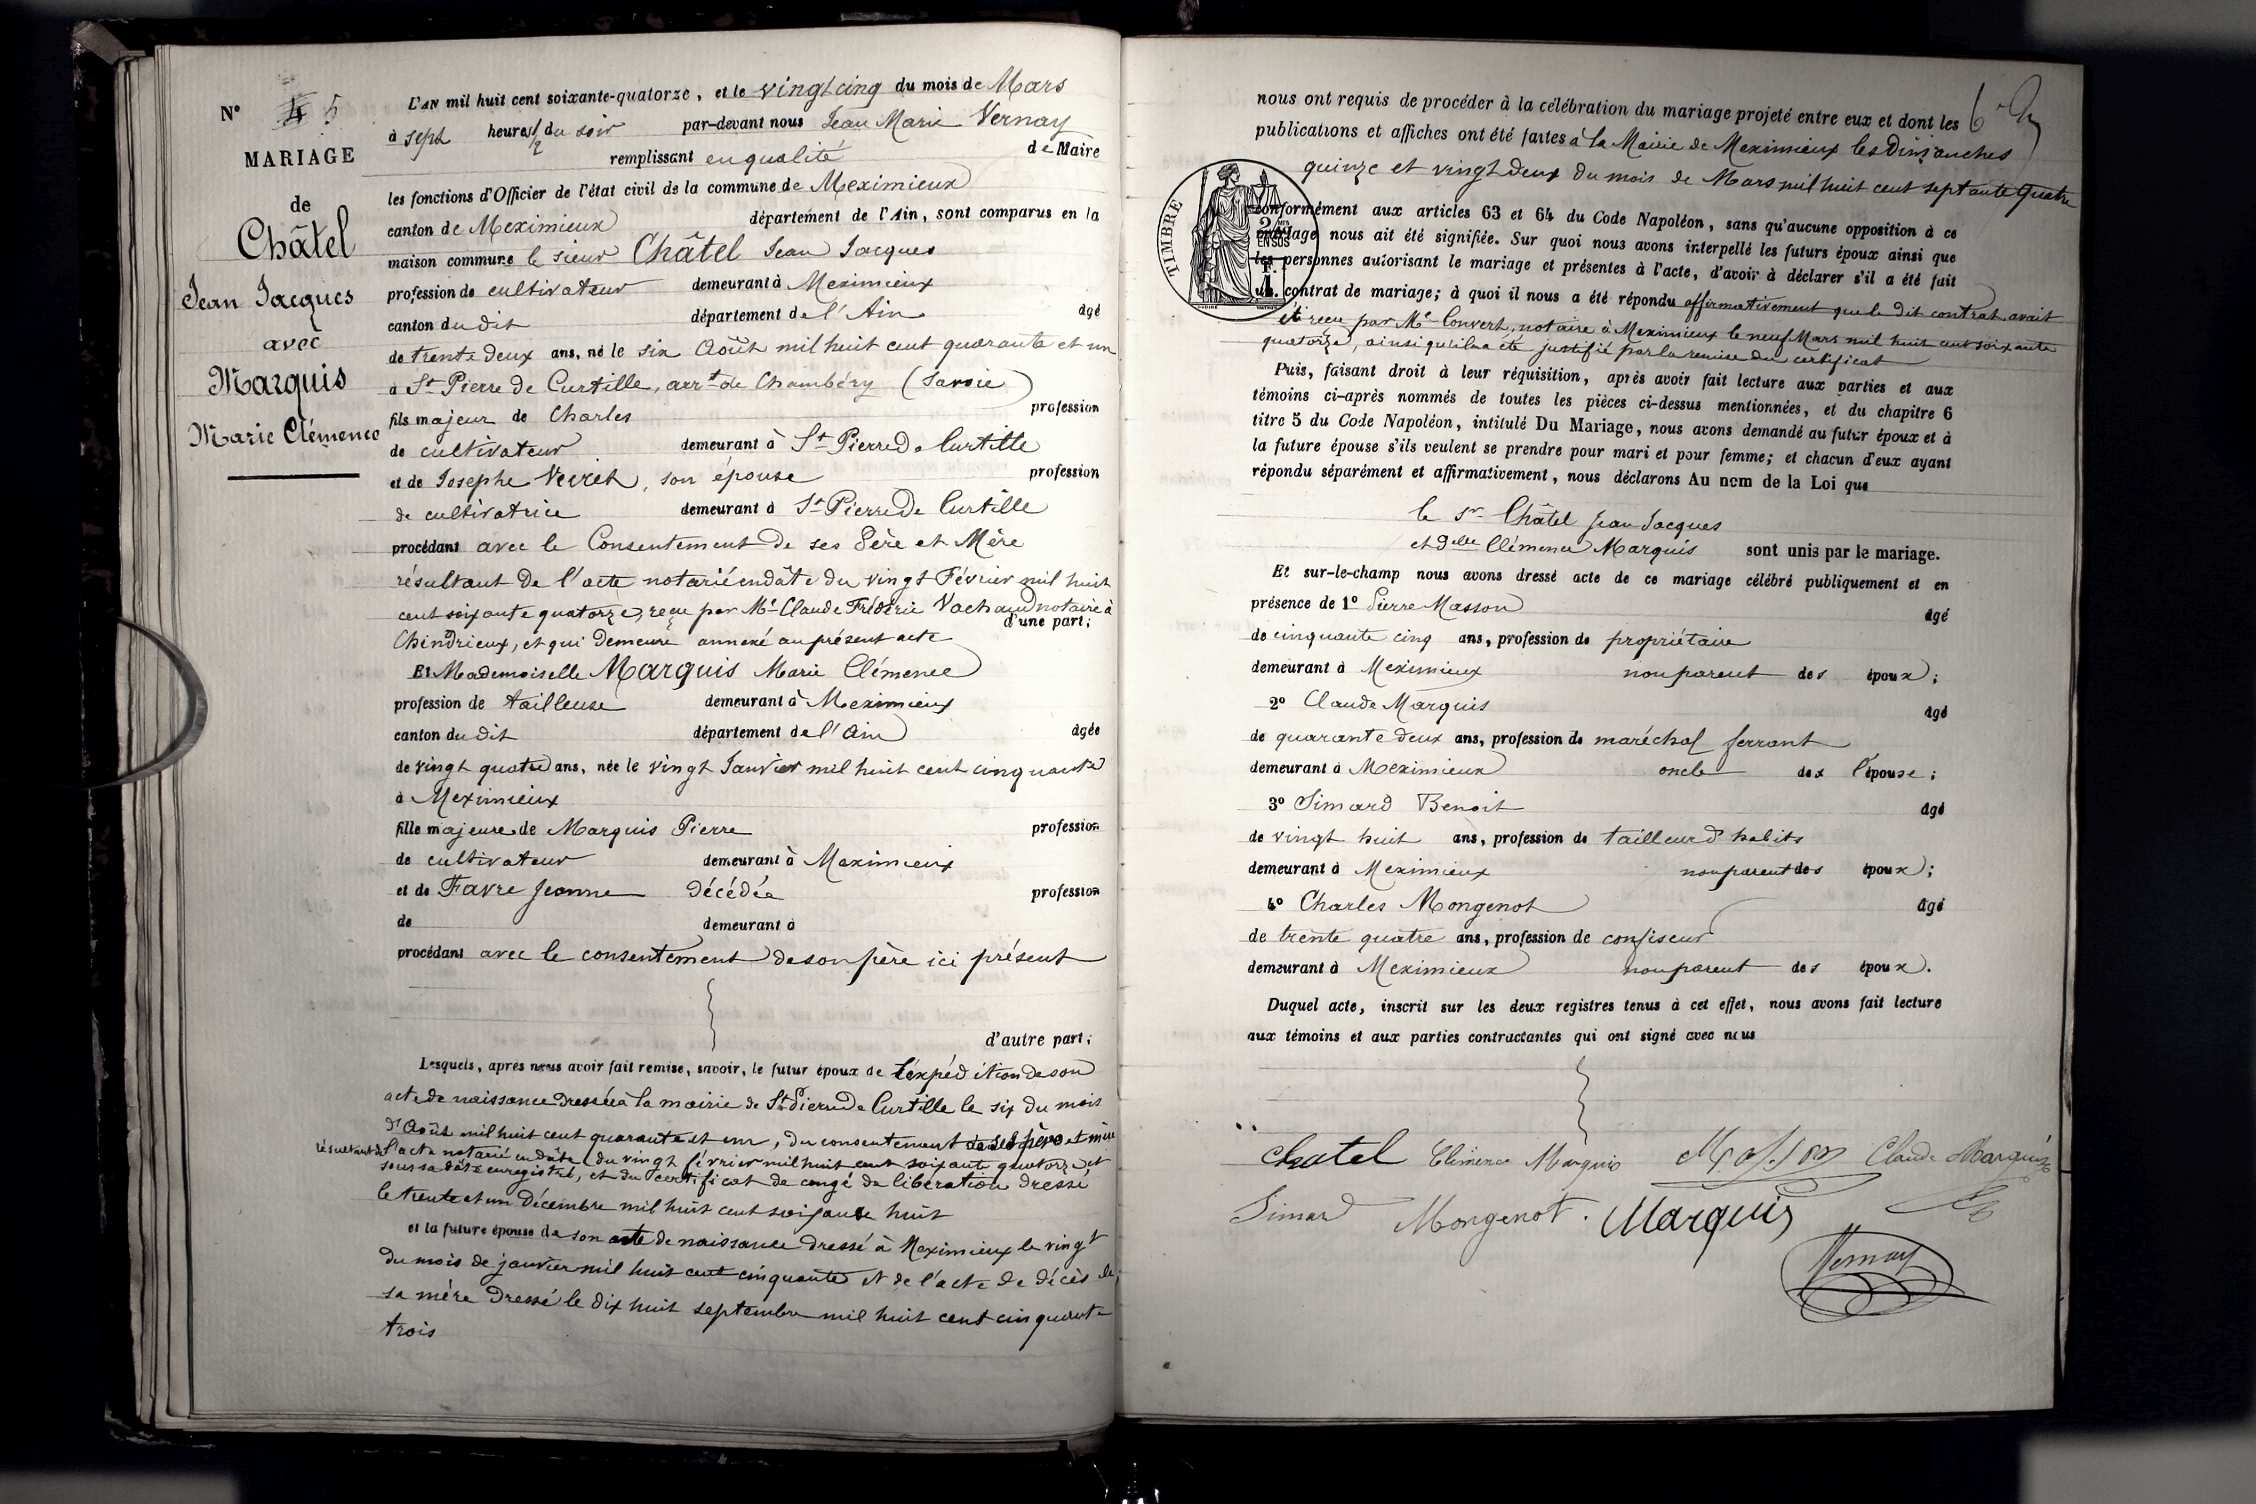 N° 4 5
MARIAGE
de
Châtel
Jean Jacques
avec
Marquis
Marie Clémence
L'AN mil huit cent soixante-quatorze, et le vingt cinq du mois de Mars
à sept heures 1/2 du soir par-devant nous Jean Marie Vernay
remplissant en qualité de Maire
les fonctions d'Officier de l'état civil de la commune de Meximieux
canton de Meximieux département de l'Ain, sont comparus en la
maison commune le sieur Châtel Jean Jacques
profession de cultivateur demeurant à Meximieux
canton du dit département de l'Ain âgé
de trente deux ans, né le six Août mil huit cent quarante et un
à St Pierre de Curtille, arrt de Chambéry (Savoie)
fils majeur de Charles profession
de cultivateur demeurant à St Pierre de Curtille
et de Josephe Veiret, son épouse profession
de cultivatrice demeurant à St Pierre de Curtille
procédant avec le Consentement de ses Père et Mère
résultant de l'acte notarié en dâte du vingt Février mil huit
cent soixante quatorze, reçu par Me Claude Frédéric Vachaud notaire à
d'une part;
Chindrieux, et qui demeure annexé au présent acte
Et Mademoiselle Marquis Marie Clémence
profession de tailleuse demeurant à Meximieux
canton du dit département de l'Ain âgée
de vingt quatre ans, née le vingt Janvier mil huit cent cinquante
à Meximieux
fille majeure de Marquis Pierre profession
de cultivateur demeurant à Meximieux
et de Favre Jeanne décédée profession
de demeurant à
procédant avec le consentement de son père ici présent
d'autre part;
Lesquels, après nous avoir fait remise, savoir, le futur époux de l'expédition de son
acte de naissance dressée à la mairie de St Pierre de Curtille le six du mois
d'Août mil huit cent quarante et un, du consentement de ses père et mère
résultant de l'acte notarié en dâte du vingt février mil huit cent soixante quatorze et
sous sa dâte enregistré, et du certificat de congé de libération dressé
le trente et un Décembre mil huit cent soixante huit
et la future épouse de son acte de naissance dressé à Meximieux le vingt
du mois de janvier mil huit cent cinquante et de l'acte de décès de
sa mère dressé le dix huit septembre mil huit cent cinquante
trois
nous ont requis de procéder à la célébration du mariage projeté entre eux et dont les
publications et affiches ont été faites à la Mairie de Meximieux les Dimanches
quinze et vingt deux du mois de Mars mil huit cent septante quatre
TIMBRE
2 MES
EN SUS
F.
1
conformément aux articles 63 et 64 du Code Napoléon, sans qu'aucune opposition à ce
mariage nous ait été signifiée. Sur quoi nous avons interpellé les futurs époux ainsi que
les personnes autorisant le mariage et présentes à l'acte, d'avoir à déclarer s'il a été fait
un contrat de mariage; à quoi il nous a été répondu affirmativement que le dit contrat avait
été reçu par Me Convert, notaire à Meximieux le neuf Mars mil huit cent soixante
quatorze, ainsi qu'il a été justifié par la remise du certificat
Puis, faisant droit à leur réquisition, après avoir fait lecture aux parties et aux
témoins ci-après nommés de toutes les pièces ci-dessus mentionnées, et du chapitre 6
titre 5 du Code Napoléon, intitulé Du Mariage, nous avons demandé au futur époux et à
la future épouse s'ils veulent se prendre pour mari et pour femme; et chacun d'eux ayant
répondu séparément et affirmativement, nous déclarons Au nom de la Loi que
le Sr Châtel Jean Jacques
et Delle Clémence Marquis sont unis par le mariage.
Et sur-le-champ nous avons dressé acte de ce mariage célébré publiquement et en
présence de 1° Pierre Masson âgé
de cinquante cinq ans, profession de propriétaire
demeurant à Meximieux non parent des époux;
2° Claude Marquis âgé
de quarante deux ans, profession de maréchal ferrant
demeurant à Meximieux oncle de l'épouse;
3° Simard Benoit âgé
de vingt huit ans, profession de tailleur d'habits
demeurant à Meximieux non parent des époux;
4° Charles Mongenot âgé
de trente quatre ans, profession de confiseur
demeurant à Meximieux non parent des époux.
Duquel acte, inscrit sur les deux registres tenus à cet effet, nous avons fait lecture
aux témoins et aux parties contractantes qui ont signé avec nous
Chatel Clémence Marquis Masson Claude Marquis
Simard Mongenot. Marquis
Vernay